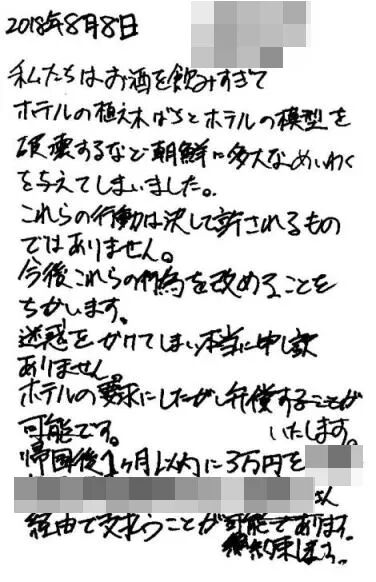 2018年8月8日
私たちはお酒を飲みすぎて
ホテルの植え木ばちとホテルの模型を
破壊するなど朝鮮に多大なめいわく
を与えてしまいました。
これらの行動は決して許されるもの
ではありません。
今後これらの行為を改めることを
ちかいます。
迷惑をかけてしまい本当に申し訳
ありません。
ホテルの要求にしたがい弁償することが
可能です。 いたします。
帰国後1ヶ月以内に3万円を
さん
経由で支払うことが可能であります。
約束します。